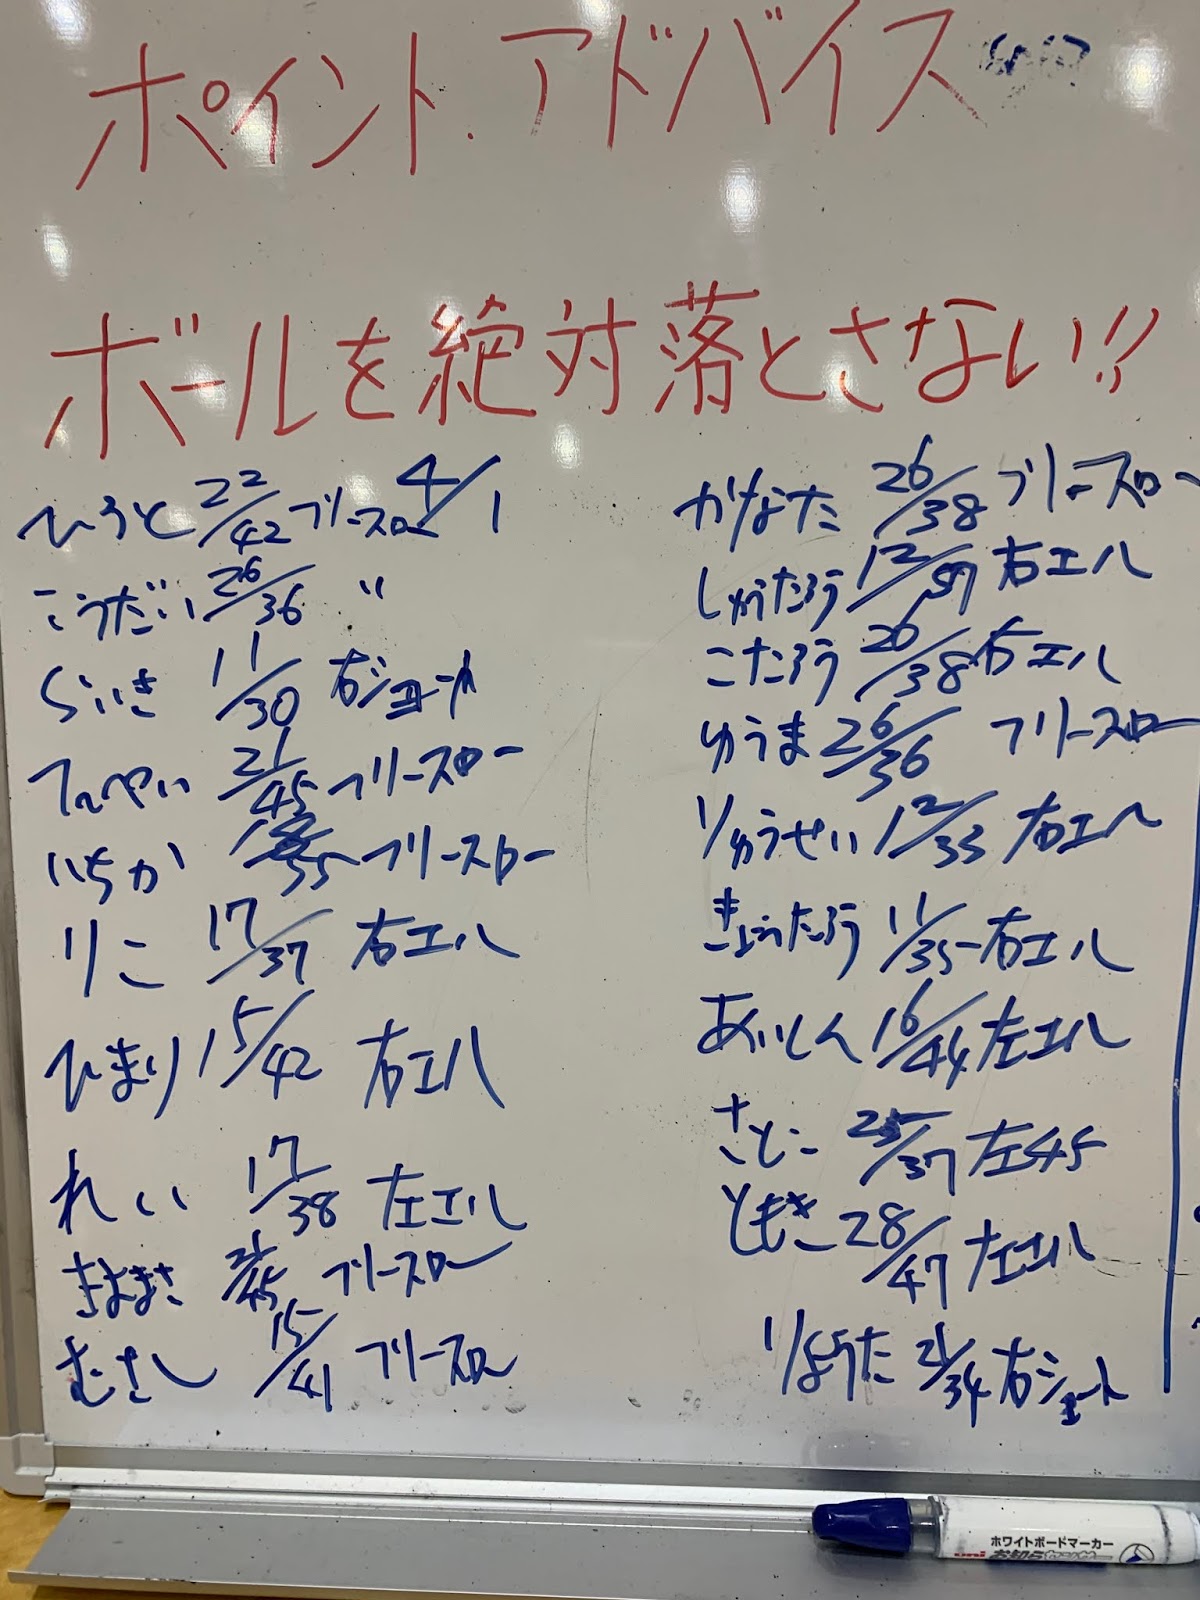 ポイント.アドバイス
ボールを絶対落とさない!!
ひろと 22/42 フリースロー 4/1
こうだい 26/36 〃
らいき 11/30 右ショート
てっぺい 21/45 フリースロー
いちか /35 フリースロー
りこ 17/37 右エル
ひまり 15/42 右エル
れい 17/38 左エル
きよまさ 21/45 フリースロー
むさし 15/41 フリースロー
かなた 26/38 フリースロー
しゅうたろう 12/37 右エル
こたろう 26/38 右エル
ゆうま 26/36 フリースロー
りゅうせい 12/33 右エル
きょうたろう 11/35 右エル
あいしん 16/44 左エル
さとこ 25/37 左45
ともき 28/47 左エル
りょうた 21/34 右ショート
ホワイトボードマーカー
uni お知らセンサー